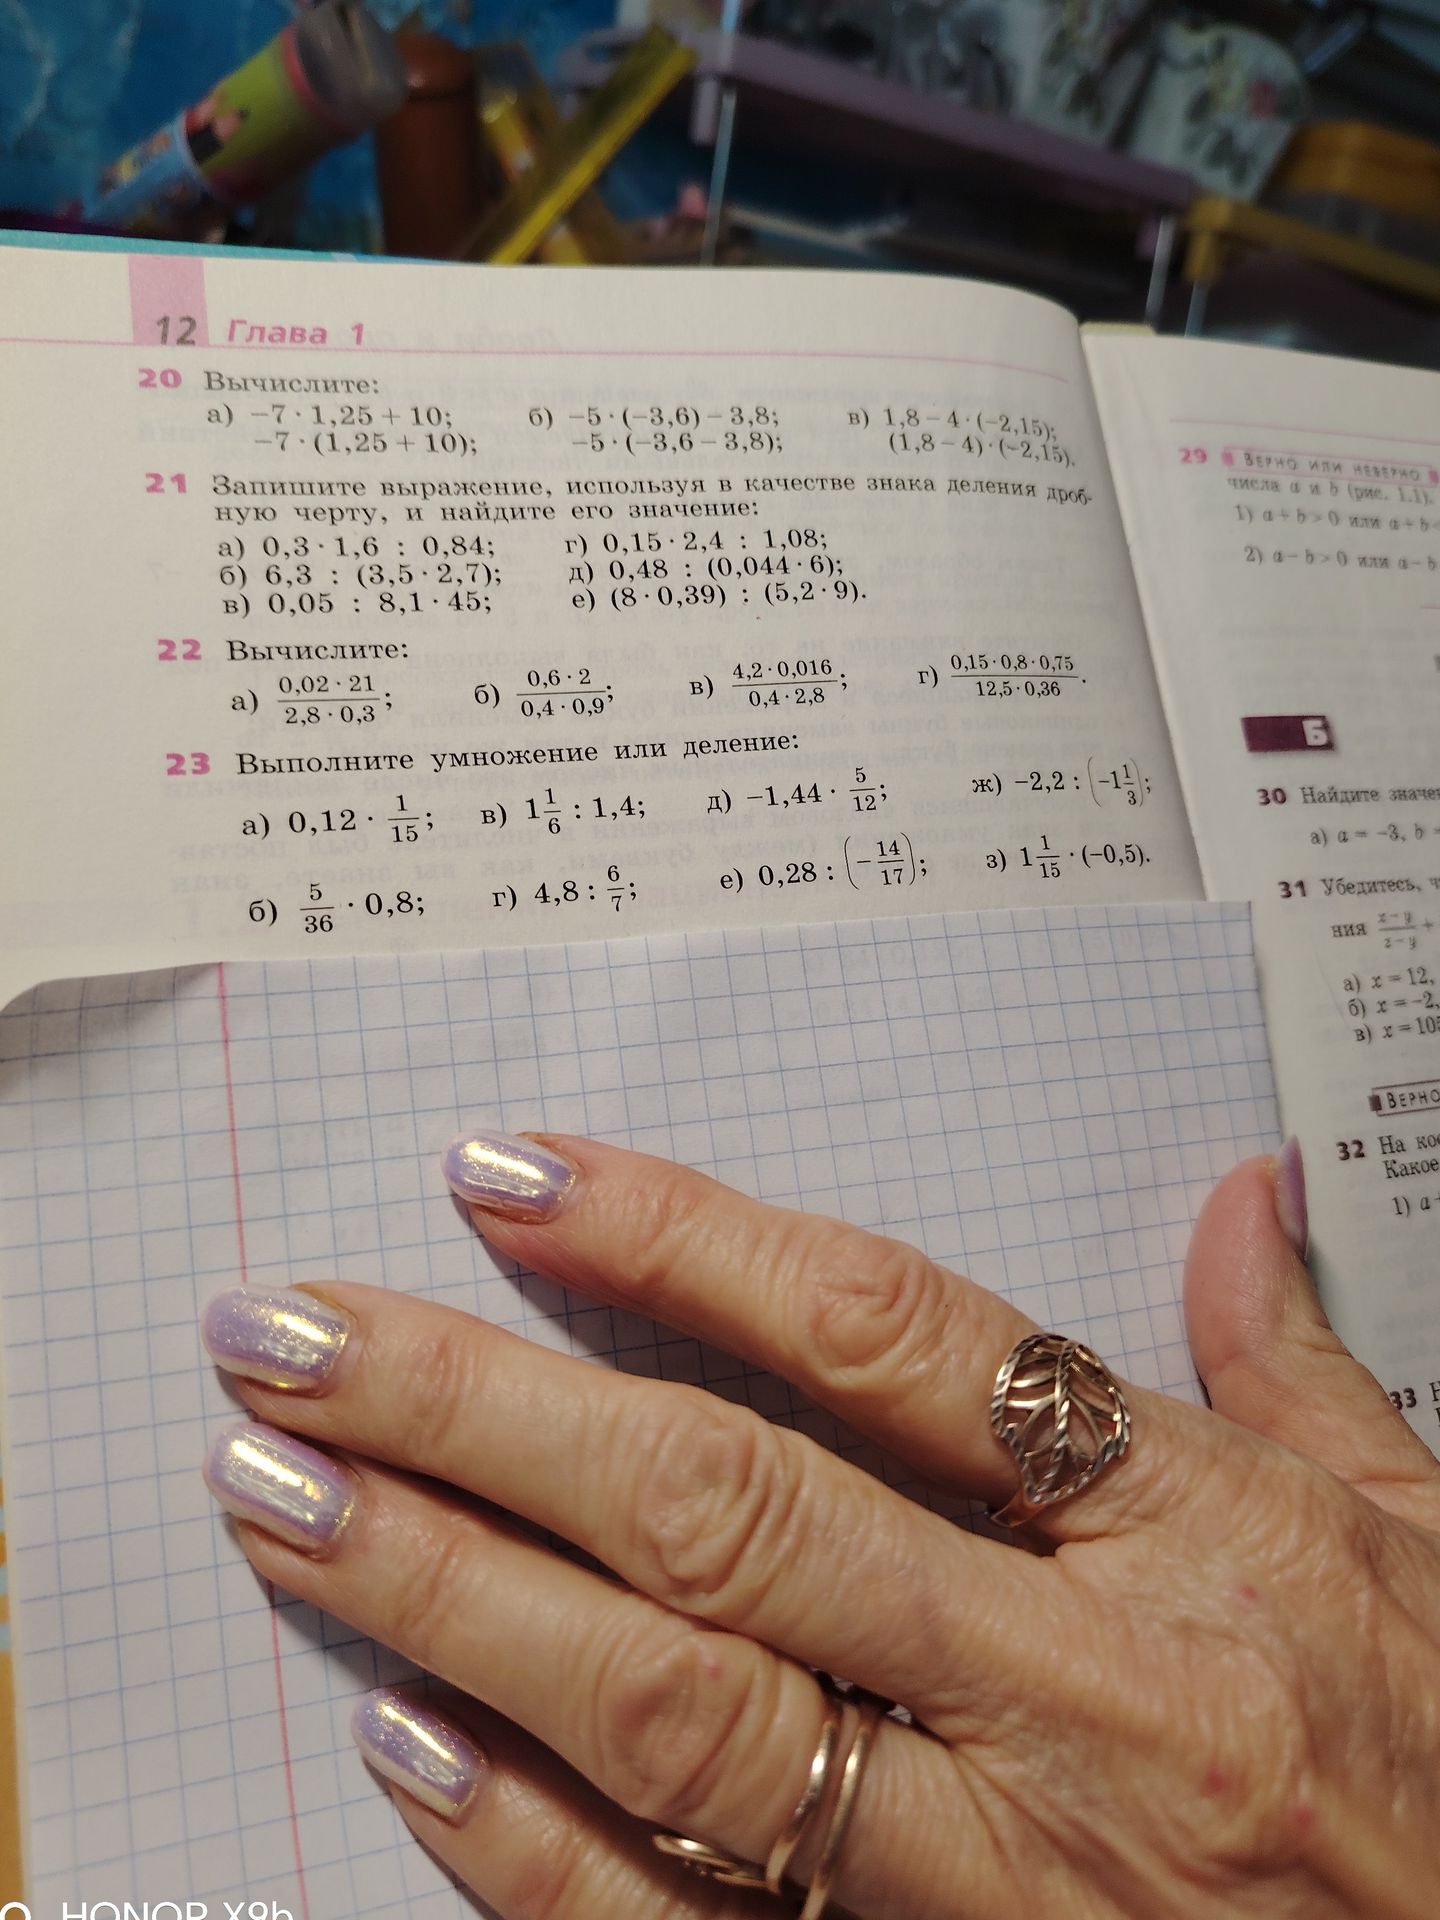 12 Глава 1
20 Вычислите:
а) −7 · 1,25 + 10; б) −5 · (−3,6) − 3,8; в) 1,8 − 4 · (−2,15);
−7 · (1,25 + 10); −5 · (−3,6 − 3,8); (1,8 − 4) · (−2,15).
21 Запишите выражение, используя в качестве знака деления дроб-
ную черту, и найдите его значение:
а) 0,3 · 1,6 : 0,84; г) 0,15 · 2,4 : 1,08;
б) 6,3 : (3,5 · 2,7); д) 0,48 : (0,044 · 6);
в) 0,05 : 8,1 · 45; е) (8 · 0,39) : (5,2 · 9).
22 Вычислите:
а) (0,02 · 21)/(2,8 · 0,3); б) (0,6 · 2)/(0,4 · 0,9); в) (4,2 · 0,016)/(0,4 · 2,8); г) (0,15 · 0,8 · 0,75)/(12,5 · 0,36).
23 Выполните умножение или деление:
а) 0,12 · 1/15; в) 1 1/6 : 1,4; д) −1,44 · 5/12; ж) −2,2 : (−1 1/3);
б) 5/36 · 0,8; г) 4,8 : 6/7; е) 0,28 : (−14/17); з) 1 1/15 · (−0,5).
29 ВЕРНО ИЛИ НЕВЕРНО
числа a и b (рис. 1.1).
1) a + b > 0 или a + b <
2) a − b > 0 или a − b
Б
30 Найдите значе
а) a = −3, b =
31 Убедитесь, ч
ния (x − y)/(z − y) +
а) x = 12,
б) x = −2,
в) x = 105
ВЕРНО
32 На коо
Какое
1) a
33
HONOR X9b